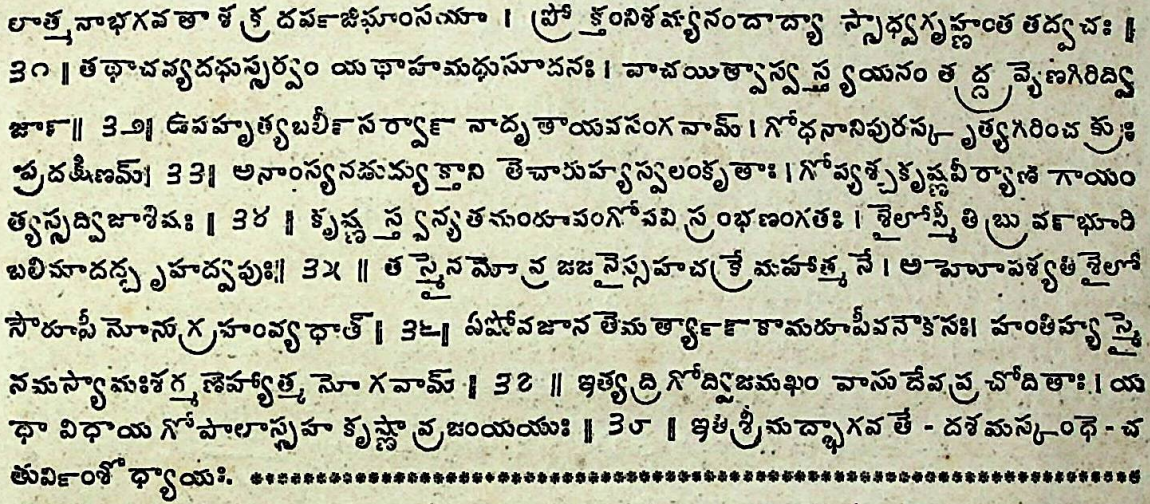 లాత్మనాభగవతా శక్రదర్పజిఘాంసయా । ప్రోక్తంనిశమ్యనందాద్యా స్సాధ్వగృహ్ణంత తద్వచః ॥
౩౧ ॥ తథాచవ్యదధుస్సర్వం యథాహమధుసూదనః । వాచయిత్వాస్వస్త్యయనం తద్ద్రవ్యేణగిరిద్వి
జాన్॥ ౩౨॥ ఉపహృత్యబలీన్ సర్వాన్ నాదృతాయవసంగవామ్ । గోధనానిపురస్కృత్యగిరించక్రుః
ప్రదక్షిణమ్॥ ౩౩॥ అనాంస్యనడుద్యుక్తాని తెచారుహ్యస్వలంకృతాః । గోప్యశ్చకృష్ణవీర్యాణి గాయం
త్యస్సద్విజాశిషః ॥ ౩౪ ॥ కృష్ణ స్త్వన్యతమంరూపంగోపవిస్రంభణంగతః । శైలోస్మీతి బ్రువన్ భూరి
బలిమాదద్బృహద్వపుః॥ ౩౫ ॥ తస్మైనమోవ్రజజనైస్సహచక్రే మహాత్మనే । అహోపశ్యతి శైలో
సౌరూపీ నోనుగ్రహంవ్యధాత్ ॥ ౩౬॥ ఏషోవజానతెమర్త్యాన్ కామరూపీవనౌకసః। హంతిహ్యస్మై
నమస్యామఃశర్మణెహ్యాత్మనో గవామ్ ॥ ౩౭ ॥ ఇత్యద్రిగోద్విజమఖం వాసుదేవప్రచోదితాః । య
థా విధాయ గోపాలాస్సహ కృష్ణా వ్రజంయయుః ॥ ౩౮ ॥ ఇతిశ్రీమద్భాగవతే - దశమస్కంధె - చ
తుర్వింశోధ్యాయః.